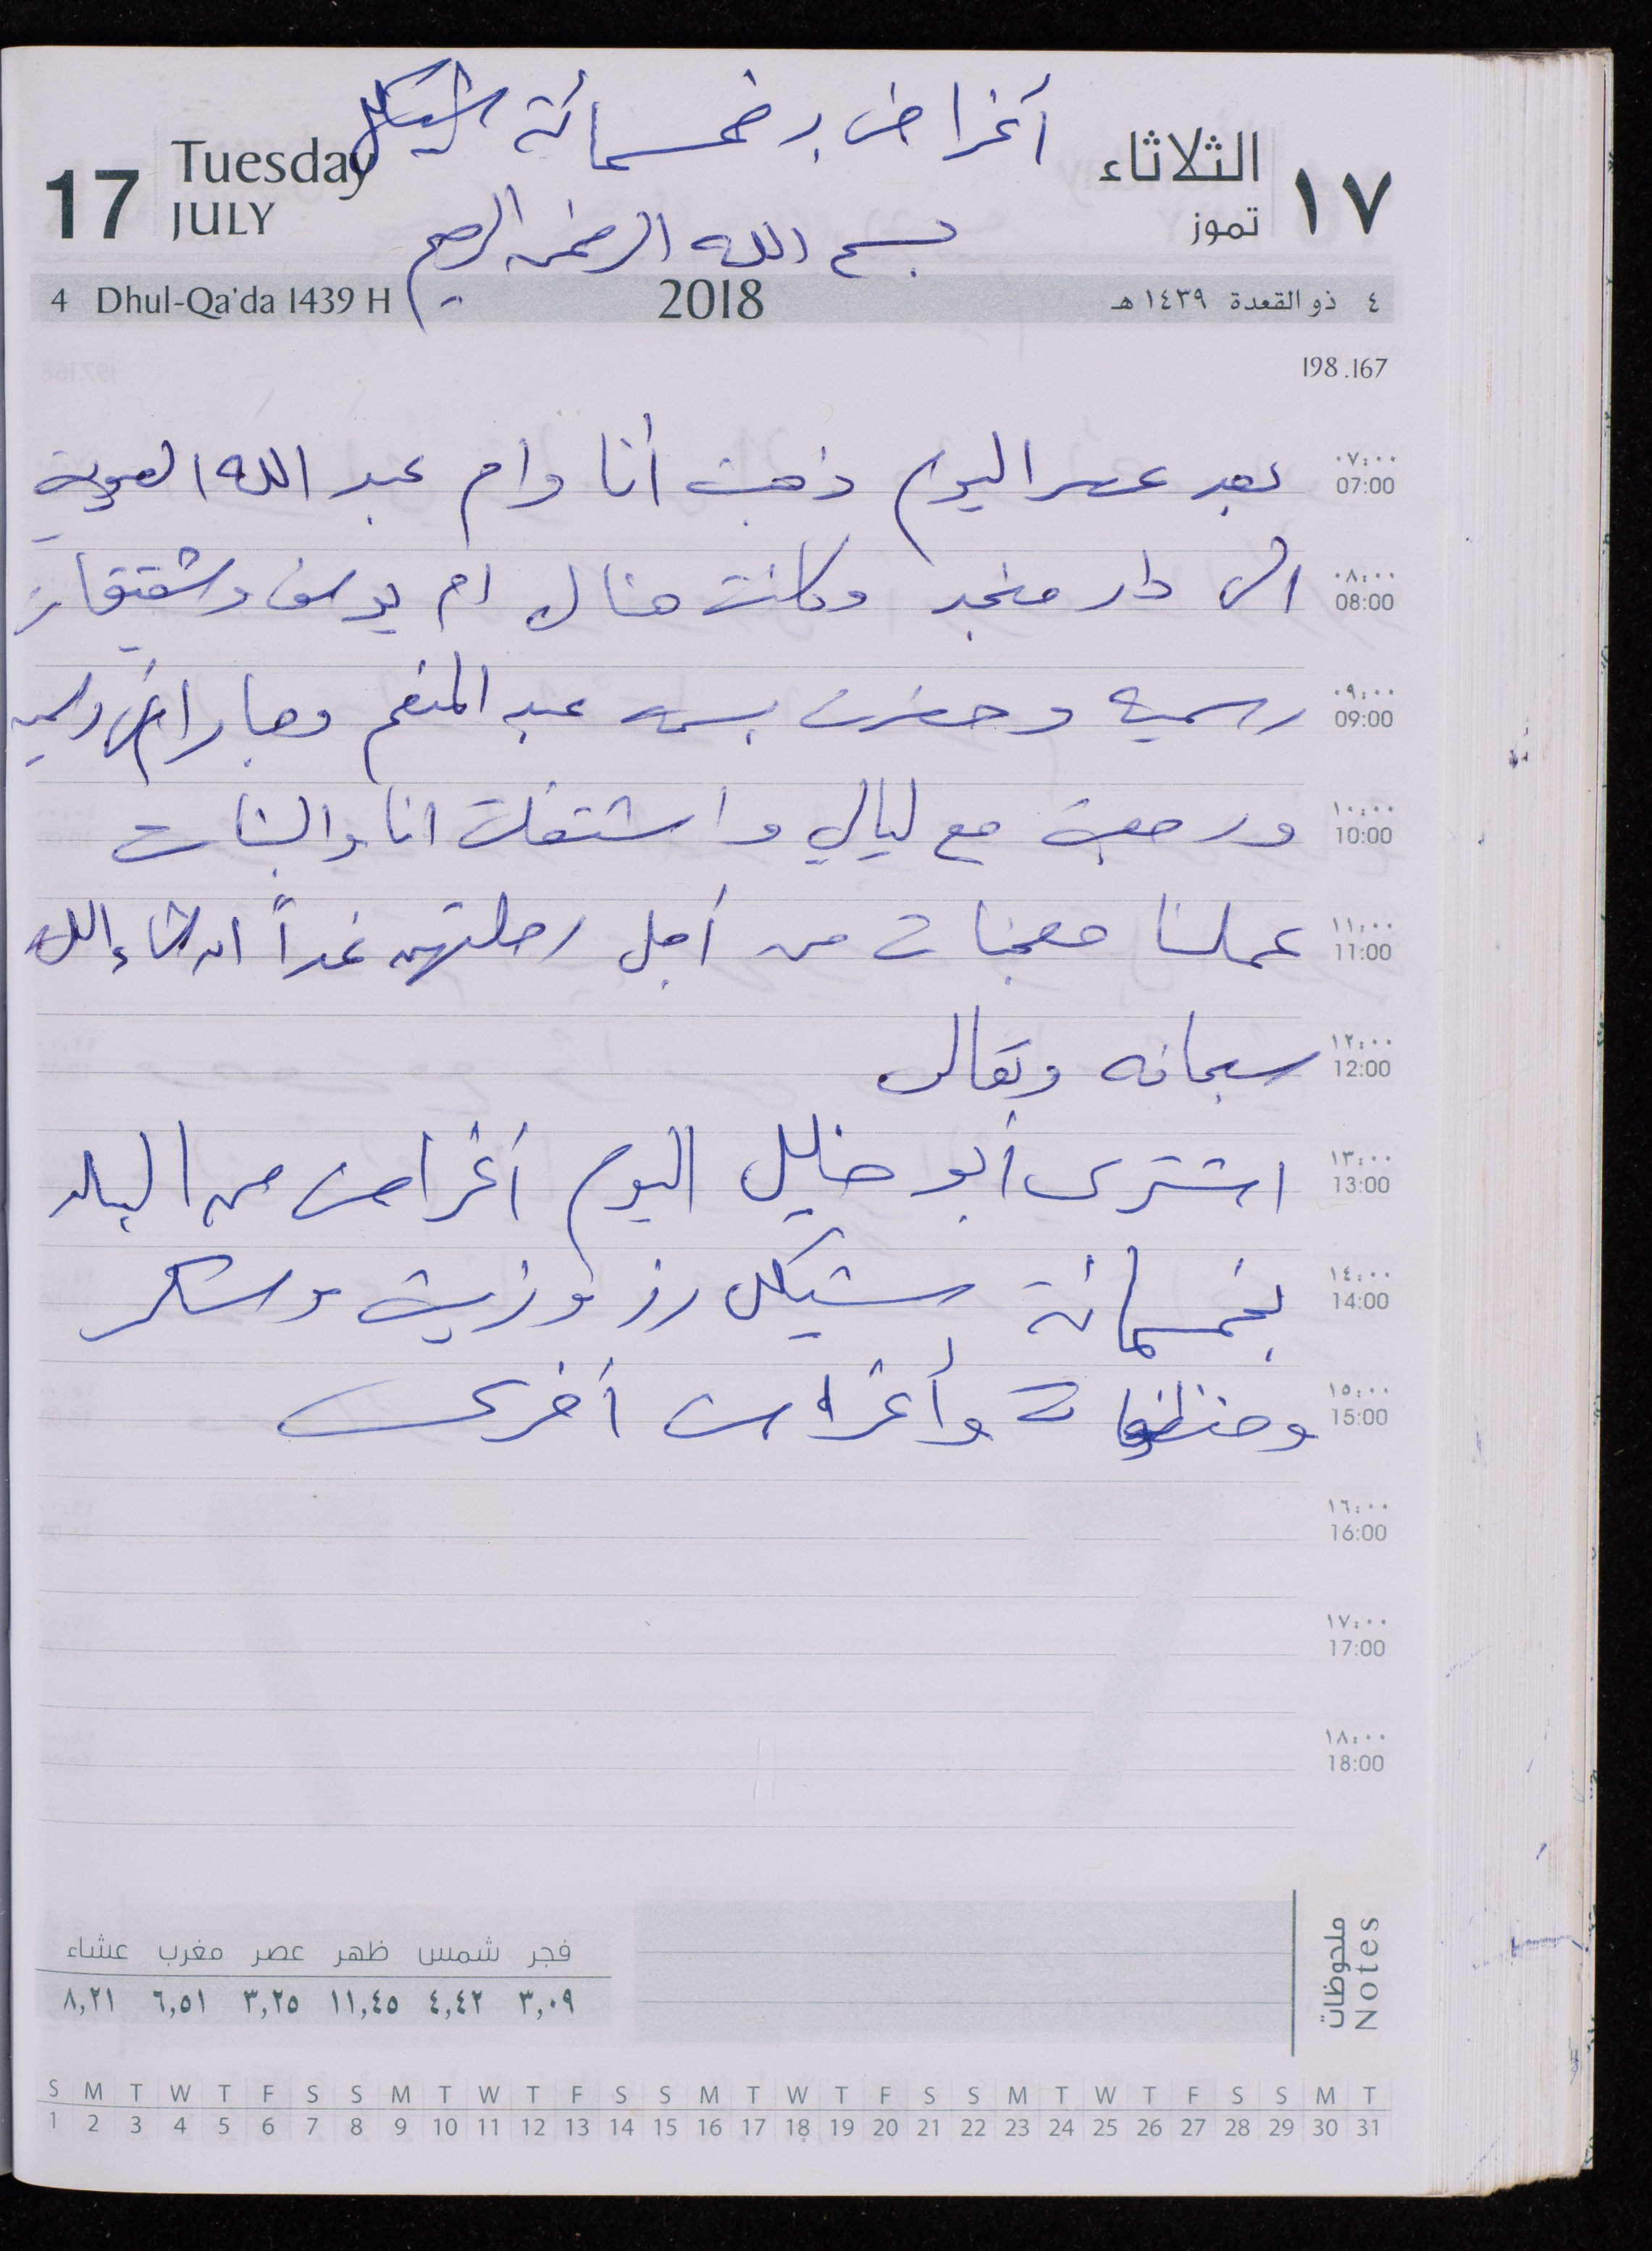 أغراض بخمسمائة شيكل
17 Tuesday JULY
الثلاثاء ١٧ تموز
بسم الله الرحمن الرحيم
4 Dhul-Qa'da 1439 H 2018 ٤ ذو القعدة ١٤٣٩ هـ
198.167
٠٧:٠٠ 07:00 بعد عصر اليوم ذهبت أنا وام عبد الله
٠٨:٠٠ 08:00 الى دار منجد وكانت هناك ام يوسف وشقيقات
٠٩:٠٠ 09:00 رسمية وحضرت بسمه عبد المنعم رسميه
١٠:٠٠ 10:00 ورجعت مع ليالي واشتغلت انا والبنات
١١:٠٠ 11:00 عملنا معجنات من أجل رحلتهن غداً ان شاء الله
١٢:٠٠ 12:00 سبحانه وتعالى
١٣:٠٠ 13:00 اشترى أبو خليل اليوم أغراض من البلد
١٤:٠٠ 14:00 بخمسمائة شيكل رز وزيت وسكر
١٥:٠٠ 15:00 ومنظفات وأغراض أخرى
١٦:٠٠ 16:00
١٧:٠٠ 17:00
١٨:٠٠ 18:00
ملحوظات Notes
فجر شمس ظهر عصر مغرب عشاء
٣,٠٩ ٤,٤٢ ١١,٤٥ ٣,٢٥ ٦,٥١ ٨,٢١
S M T W T F S S M T W T F S S M T W T F S S M T W T F S S M T
1 2 3 4 5 6 7 8 9 10 11 12 13 14 15 16 17 18 19 20 21 22 23 24 25 26 27 28 29 30 31